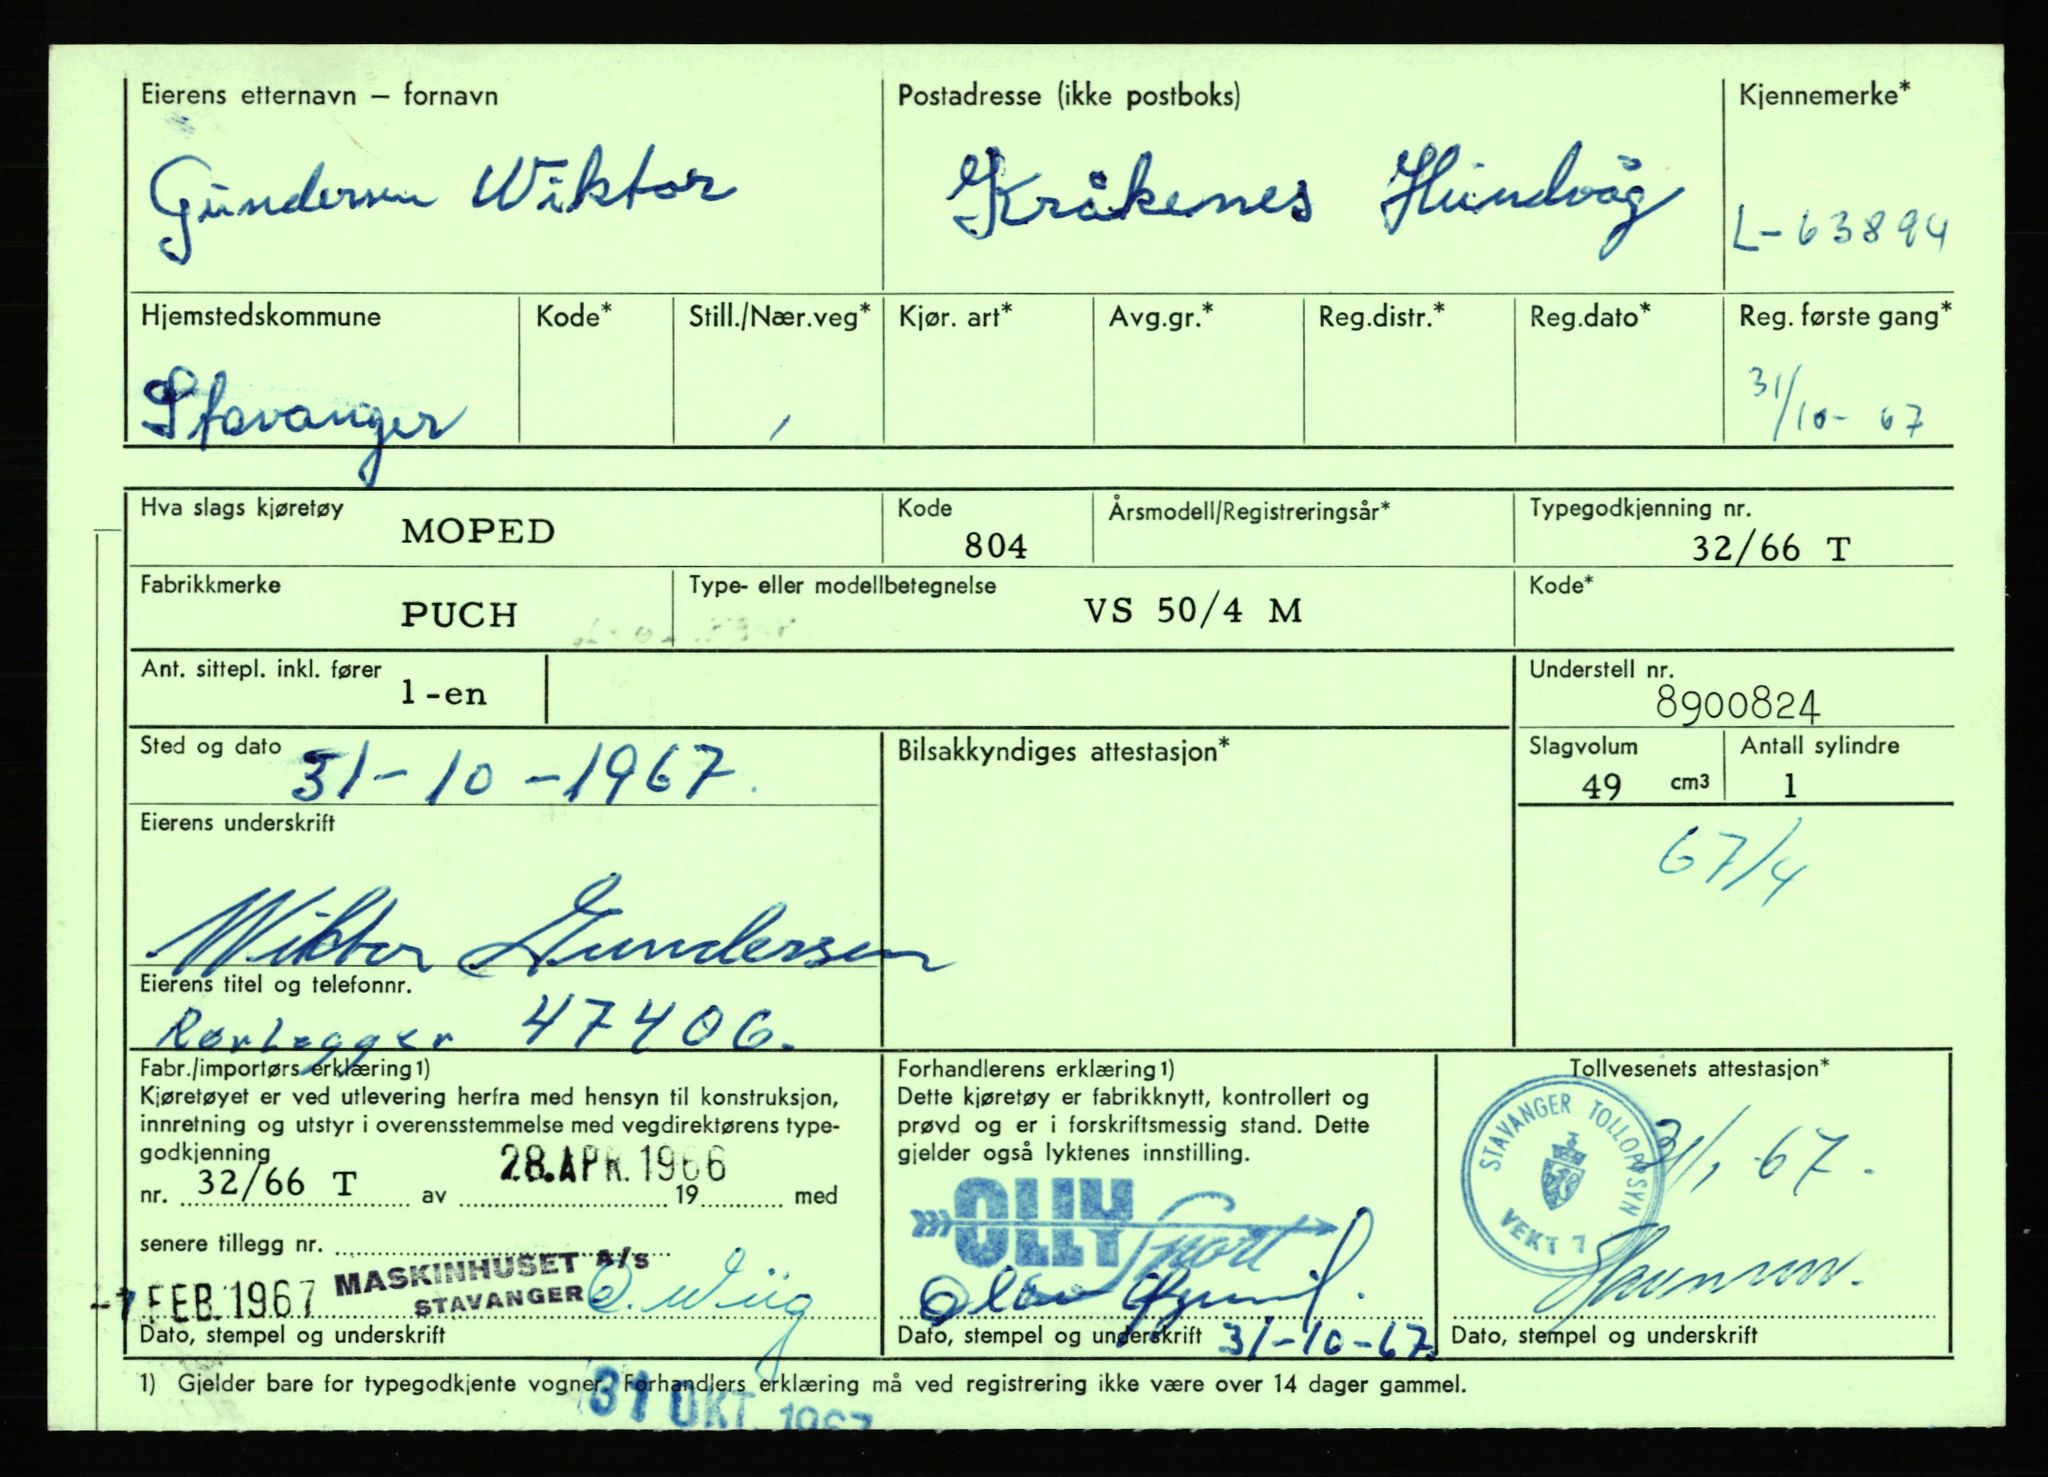 Eierens etternavn – fornavn Postadresse (ikke postboks) Kjennemerke*
Gundersen Wiktor Kråkenes Hundvåg L-63894
Hjemstedskommune Kode* Still./Nær.veg* Kjør. art* Avg.gr.* Reg.distr.* Reg.dato* Reg. første gang*
Stavanger 31/10-67
Hva slags kjøretøy MOPED Kode 804 Årsmodell/Registreringsår* Typegodkjenning nr. 32/66 T
Fabrikkmerke PUCH Type- eller modellbetegnelse VS 50/4 M Kode*
Ant. sittepl. inkl. fører 1-en Understell nr. 8900824
Sted og dato 31-10-1967. Bilsakkyndiges attestasjon* Slagvolum 49 cm3 Antall sylindre 1
67/4
Eierens underskrift
Wiktor Gundersen
Eierens titel og telefonnr.
Rørlegger 47406.
Fabr./importørs erklæring 1)
Kjøretøyet er ved utlevering herfra med hensyn til konstruksjon,
innretning og utstyr i overensstemmelse med vegdirektørens type-
godkjenning
nr. 32/66 T av 28.APR.1966 19 med
senere tillegg nr.
-1 FEB.1967 MASKINHUSET A/S
STAVANGER Wiig
Dato, stempel og underskrift
Forhandlerens erklæring 1)
Dette kjøretøy er fabrikknytt, kontrollert og
prøvd og er i forskriftsmessig stand. Dette
gjelder også lyktenes innstilling.
OLLY Sport
Olav
Dato, stempel og underskrift 31-10-67.
Tollvesenets attestasjon*
STAVANGER TOLLOPPSYN
VEKT 7
31/1-67.
Dato, stempel og underskrift
1) Gjelder bare for typegodkjente vogner. Forhandlers erklæring må ved registrering ikke være over 14 dager gammel.
31 OKT. 1967